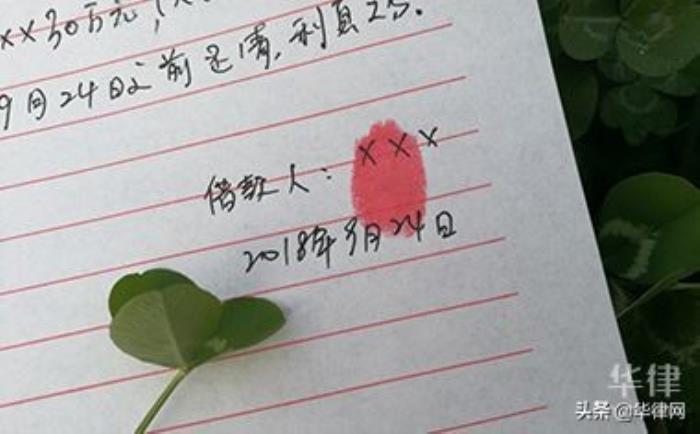 ××30万元
9月24日之前还清,利息2分.
借款人:×××
2018年9月24日
华律
头条@华律网